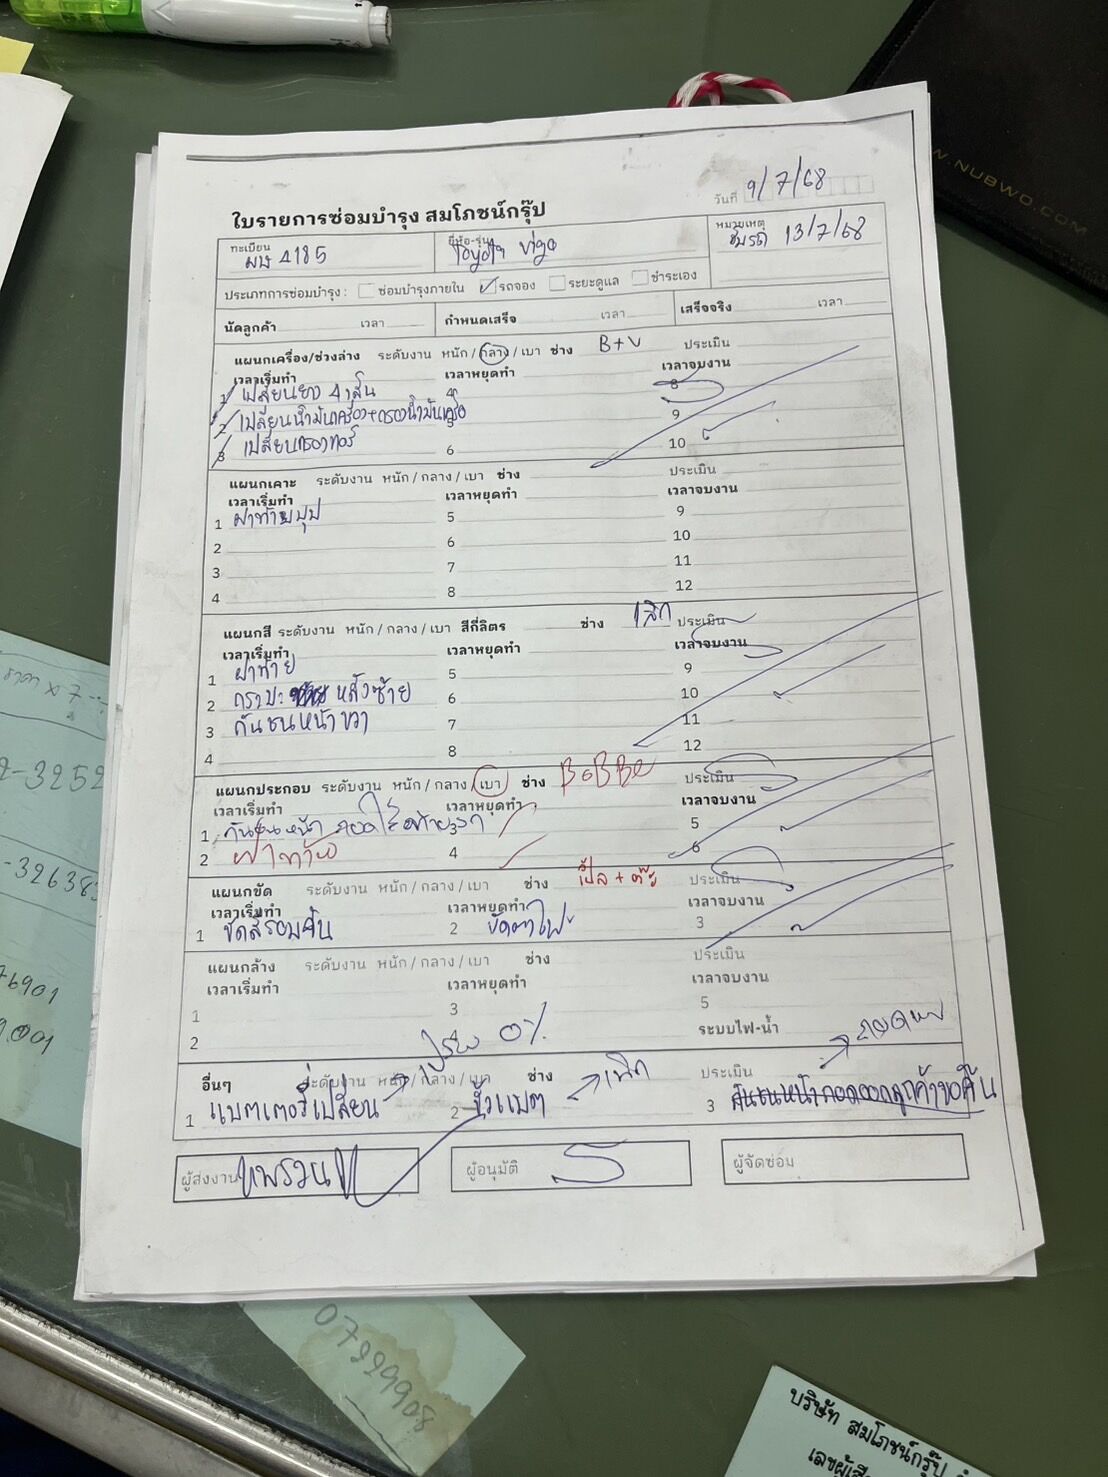 WWW.NUBWO.COM
วันที่ 9/7/68
ใบรายการซ่อมบำรุง สมโภชน์กรุ๊ป
ทะเบียน ผษ 4185 ยี่ห้อ-รุ่น Toyota vigo หมายเหตุ รับรถ 13/7/68
ประเภทการซ่อมบำรุง : ซ่อมบำรุงภายใน รถจอง ระยะดูแล ชำระเอง
นัดลูกค้า เวลา กำหนดเสร็จ เวลา เสร็จจริง เวลา
แผนกเครื่อง/ช่วงล่าง ระดับงาน หนัก / กลาง / เบา ช่าง B+V ประเมิน
เวลาเริ่มทำ เวลาหยุดทำ เวลาจบงาน
1 เปลี่ยนยาง 4 เส้น 8
2 เปลี่ยนน้ำมันเครื่อง+กรองน้ำมันเครื่อง 9
3 เปลี่ยนกรองแอร์ 6 10
แผนกเคาะ ระดับงาน หนัก / กลาง / เบา ช่าง ประเมิน
เวลาเริ่มทำ เวลาหยุดทำ เวลาจบงาน
1 ฝาท้ายบุบ 5 9
2 6 10
3 7 11
4 8 12
แผนกสี ระดับงาน หนัก / กลาง / เบา สีกี่ลิตร ช่าง เล็ก ประเมิน
เวลาเริ่มทำ เวลาหยุดทำ เวลาจบงาน
1 ฝาท้าย 5 9
2 กระบะ หลังซ้าย 6 10
3 กันชนหน้าขวา 7 11
4 8 12
แผนกประกอบ ระดับงาน หนัก / กลาง / เบา ช่าง ประเมิน
เวลาเริ่มทำ เวลาหยุดทำ เวลาจบงาน
1 กันชนหน้า ถอด 3 5
2 ฝาท้าย 4 6
แผนกขัด ระดับงาน หนัก / กลาง / เบา ช่าง ประเมิน
เวลาเริ่มทำ เวลาหยุดทำ เวลาจบงาน
1 ขัดสีรอบคัน 2 ขัดตาไฟ 3
แผนกล้าง ระดับงาน หนัก / กลาง / เบา ช่าง ประเมิน
เวลาเริ่มทำ เวลาหยุดทำ เวลาจบงาน
1 3 5
2 4 0% ระบบไฟ-น้ำ
อื่นๆ ระดับงาน หนัก / กลาง / เบา ช่าง ประเมิน
1 แบตเตอรี่เปลี่ยน 2 ขั้วแบต 3 กันชนหน้าถอดออกลูกค้าขอคืน
ผู้ส่งงาน ผู้อนุมัติ ผู้จัดซ่อม
-3252
-32638
76901
07999908
บริษัท สมโภชน์กรุ๊ป